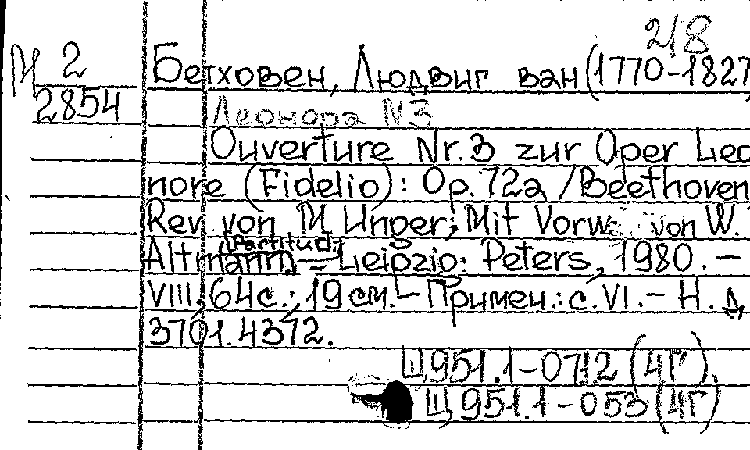 2/8
М 2 Бетховен, Людвиг ван (1770-1827
2854 Леонора N3
Ouverture Nr.3 zur Oper Leo
nore (Fidelio): Op.72a /Beethoven
Rev. von M. Unger; Mit Vorw. von W.
Altmann. – Leipzig: Peters, 1980. –
(Partitur)
VIII, 64с.; 19 см. – Примеч.: с. VI. – Н. д.
3701.4372.
Щ951.1-0712 (4Г),
Щ951.1-053 (4Г)